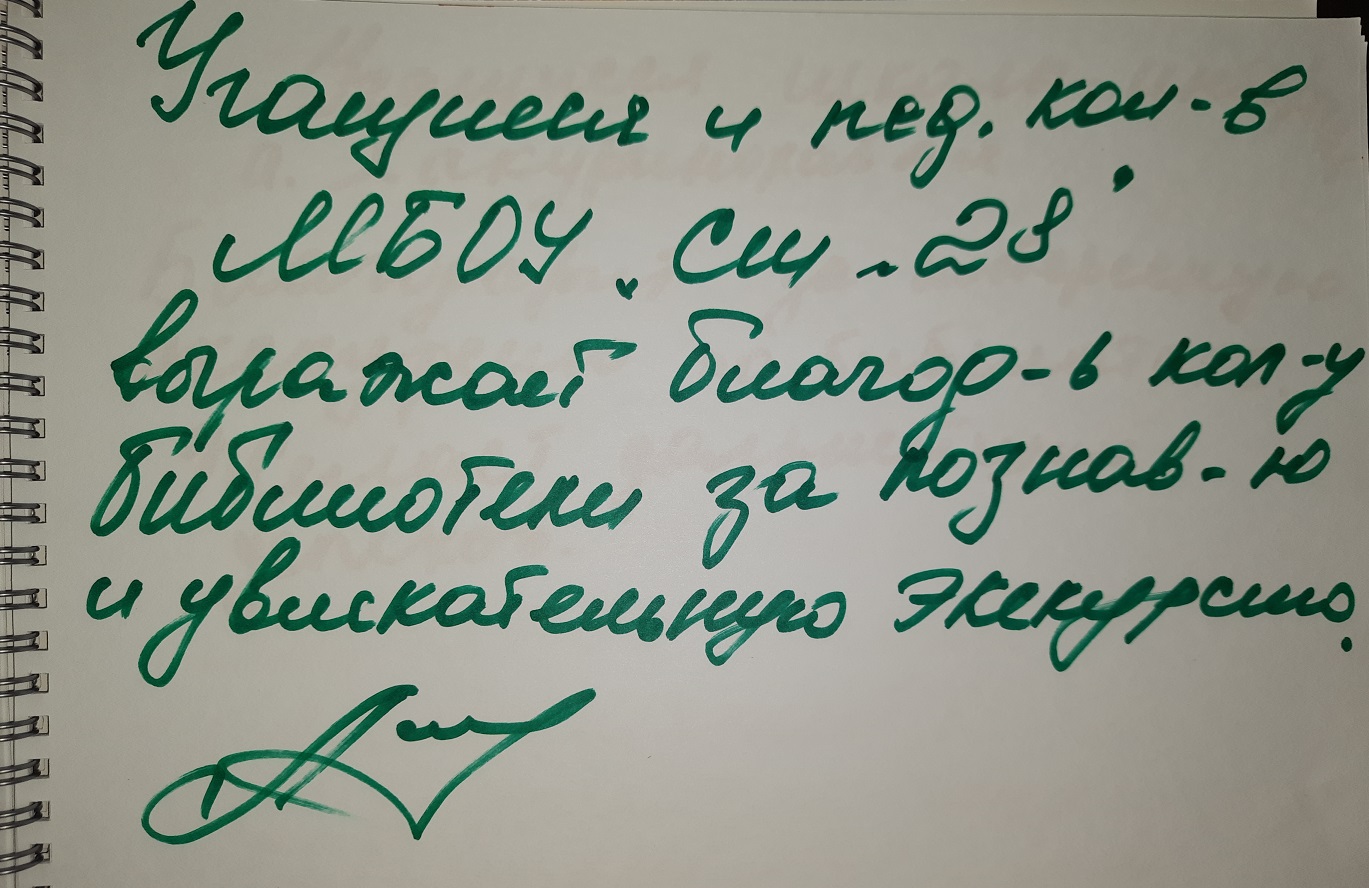 Учащиеся и пед. кол-в
МБОУ "СШ - 28"
выражает благодр-ь кол-у
библиотеки за познав-ю
и увлекательную экскурсию.